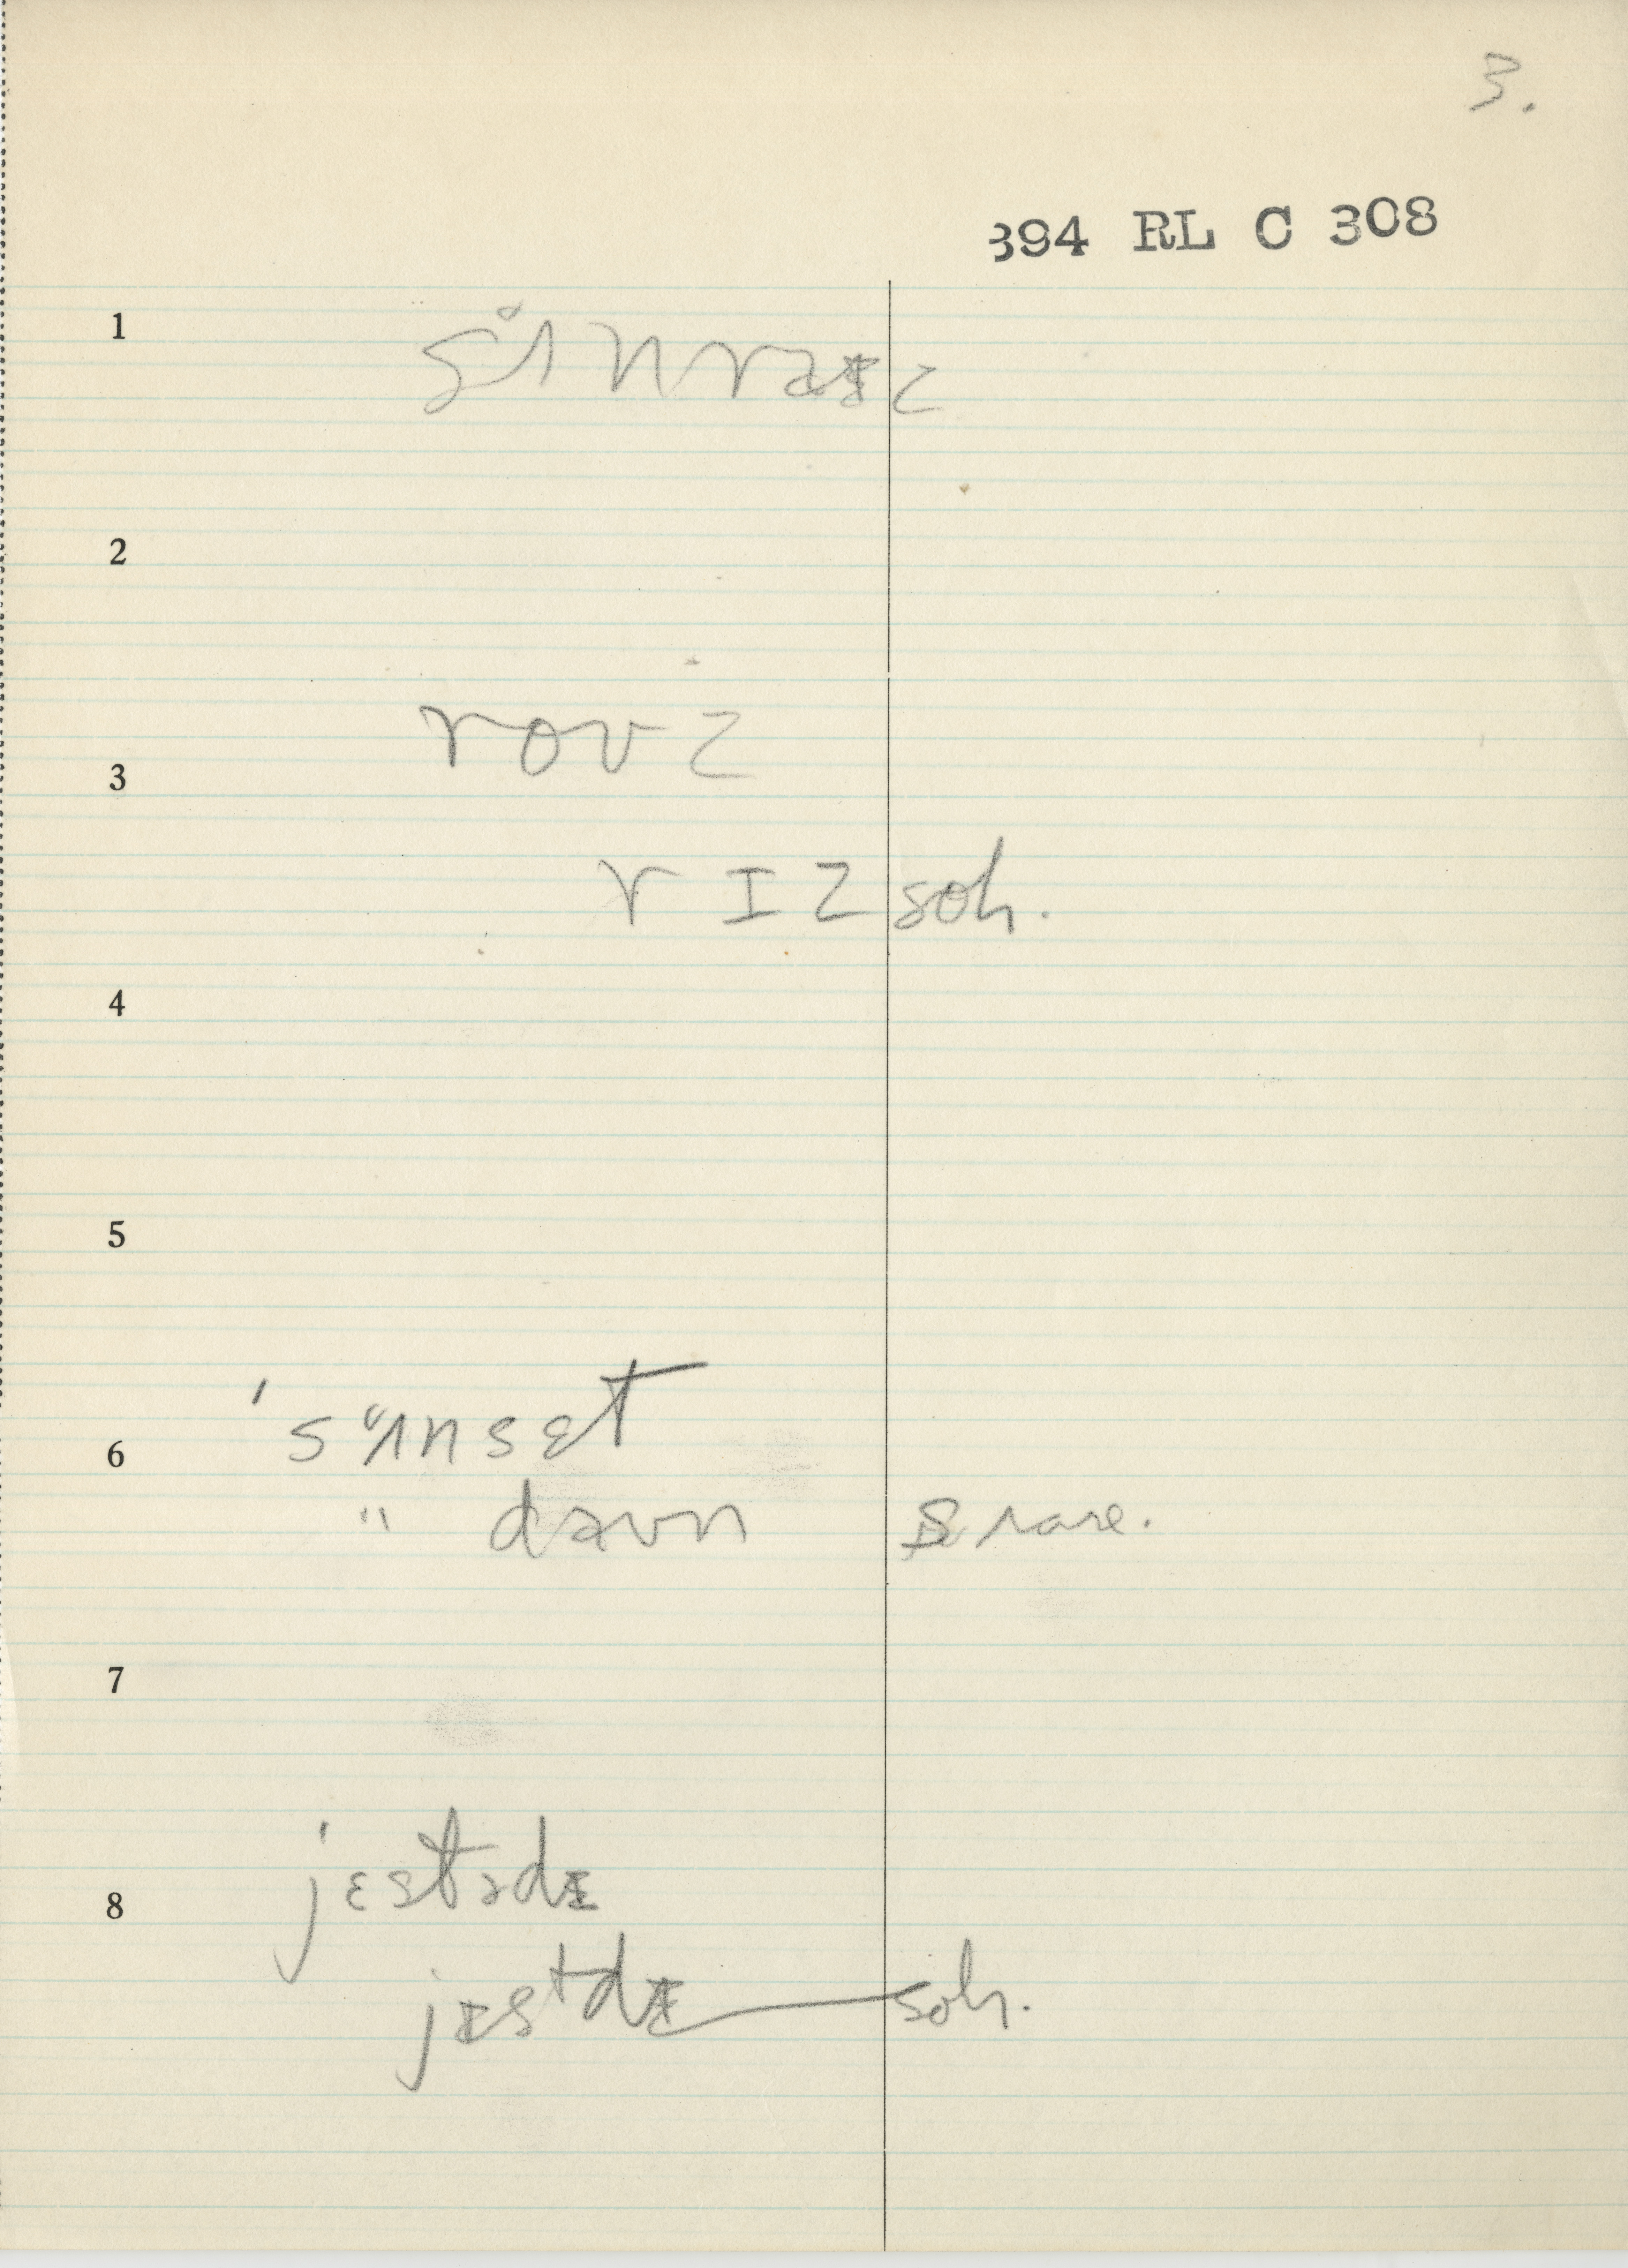 3.
394 RL C 308
1
sʌnraɪz
2
roʊz
3
r ɪ z soh.
4
5
'sʌnsɛt
6
" daʊn S rare.
7
'jɛstədɪ
8
jɪstdɪ soh.